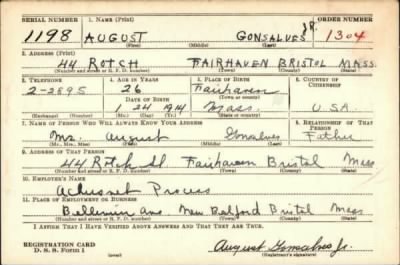 SERIAL NUMBER 1. NAME (Print) ORDER NUMBER
1198 AUGUST GONSALVES JR. 1304
(First) (Middle) (Last)
2. ADDRESS (Print)
44 ROTCH FAIRHAVEN BRISTOL MASS.
(Number and street or R. F. D. number) (Town) (County) (State)
3. TELEPHONE 4. AGE IN YEARS 5. PLACE OF BIRTH 6. COUNTRY OF CITIZENSHIP
2-2895 26 Fairhaven
DATE OF BIRTH (Town or county)
1 24 1914 Mass. U.S.A.
(Exchange) (Number) (Mo.) (Day) (Yr.) (State or country)
7. NAME OF PERSON WHO WILL ALWAYS KNOW YOUR ADDRESS 8. RELATIONSHIP OF THAT PERSON
Mr. August Gonsalves Father
(Mr., Mrs., Miss) (First) (Middle) (Last)
9. ADDRESS OF THAT PERSON
44 Rotch St Fairhaven Bristol Mass
(Number and street or R. F. D. number) (Town) (County) (State)
10. EMPLOYER'S NAME
Acushnet Process
11. PLACE OF EMPLOYMENT OR BUSINESS
Belleview Ave. New Bedford Bristol Mass
(Number and street or R. F. D. number) (Town) (County) (State)
I AFFIRM THAT I HAVE VERIFIED ABOVE ANSWERS AND THAT THEY ARE TRUE.
REGISTRATION CARD
D. S. S. Form 1 (over) August Gonsalves Jr.
(Registrant's signature)